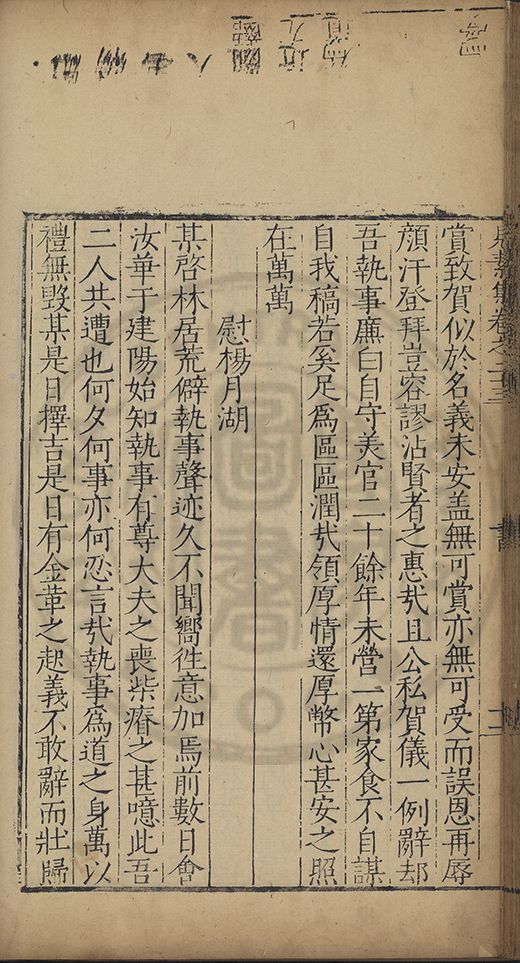 賞致賀似於名義未安盖無可賞亦無可受而誤恩再辱
顔汗登拜豈容謬沾賢者之惠㢤且公私賀儀一例辭却
吾執事廉白自守美官二十餘年未營一第家食不自謀
自我稿若奚足為區區潤㢤領厚情還厚幣心甚安之照
在萬萬
慰楊月湖
某啓林居荒僻執事聲迹久不聞嚮徃意加焉前數日會
汝華于建陽始知執事有尊大夫之喪柴瘠之甚噫此吾
二人共遭也何夕何事亦何忍言㢤執事為道之身萬以
禮無毁某是日擇吉是日有金革之起義不敢辭而壯歸